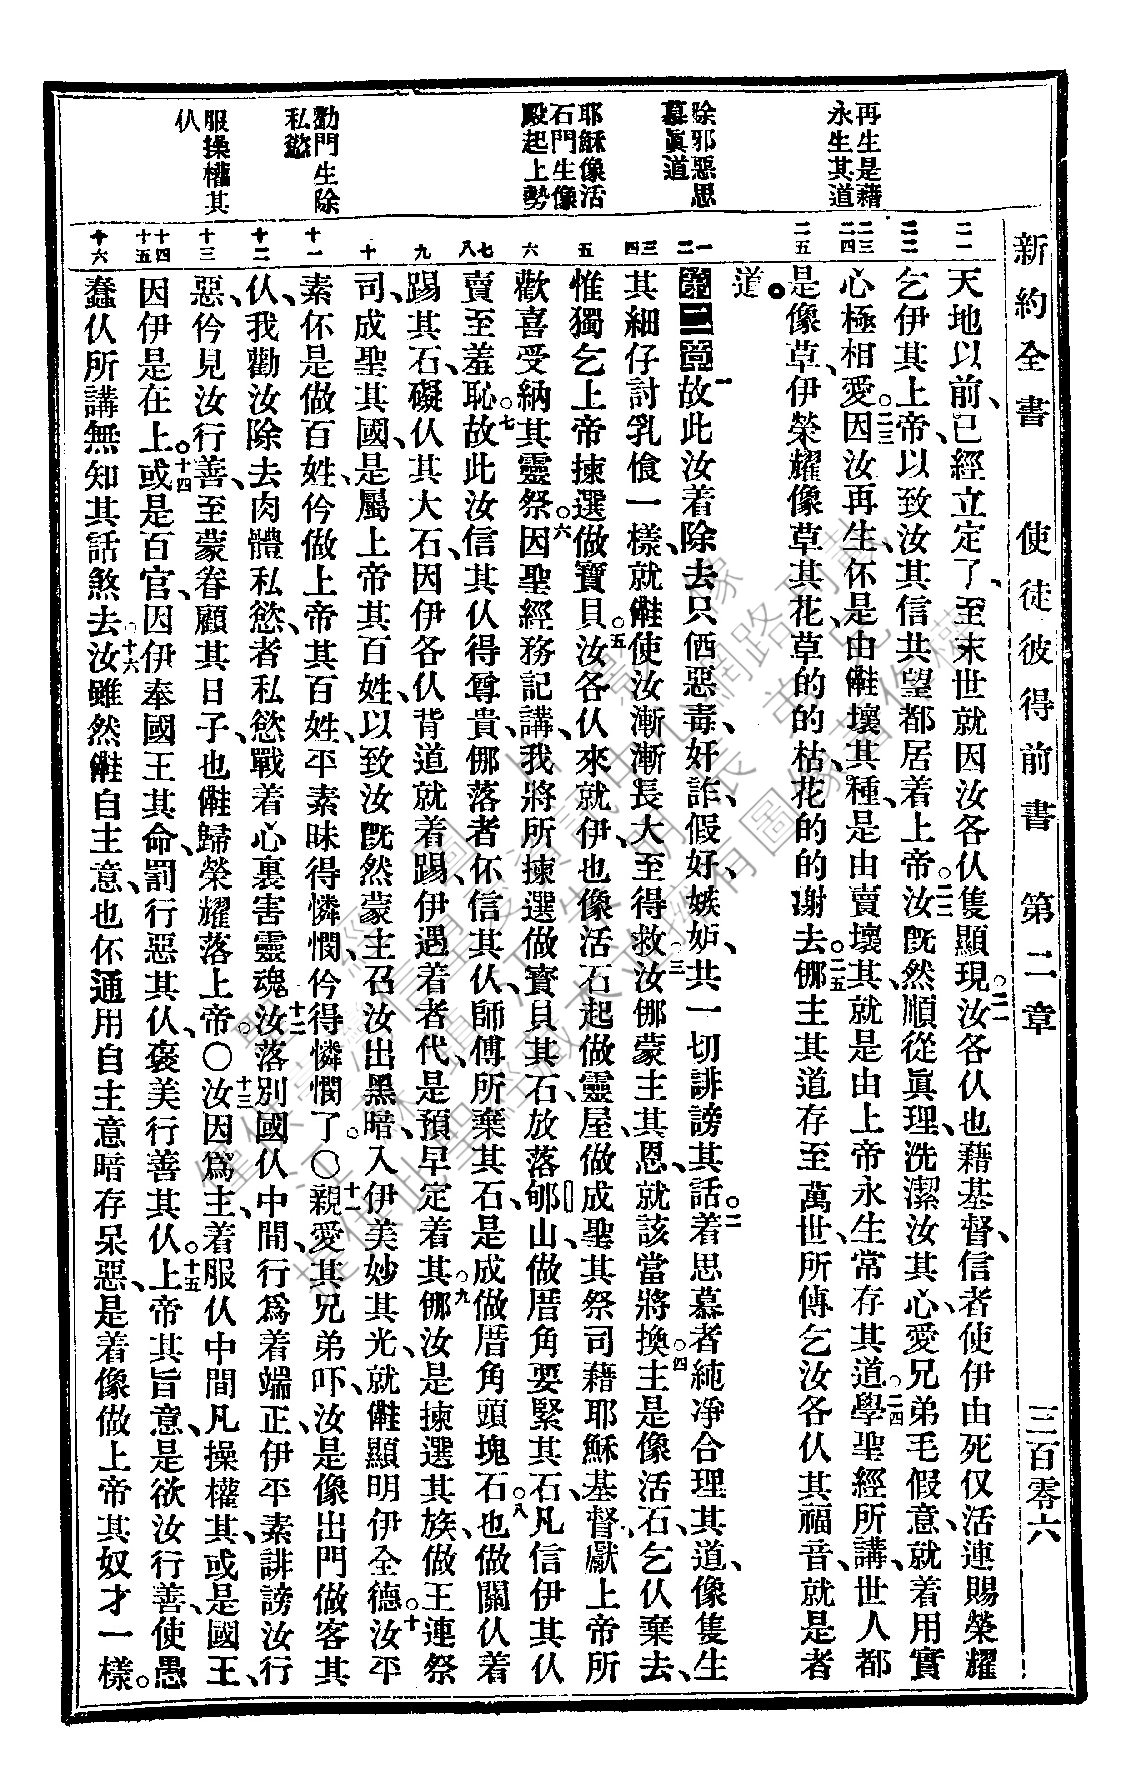 新約全書 使徒彼得前書 第二章 三百零六
再生是藉
永生其道
除邪惡思
慕眞道
耶穌像活
石門生像
殿起上勢
勸門生除
私慾
服操權其
仈
二一
天地以前、已經立定了、至末世就因汝各仈隻顯現。二一汝各仈也藉基督、信者使伊由死仅活連賜榮耀
二二
乞伊其上帝、以致汝其信共望都居着上帝。二二汝旣然順從眞理、洗潔汝其心、愛兄弟毛假意、就着用實
二三
二四
心極相愛。二三因汝再生、伓是由𣍐壞其種、是由賣壞其、就是由上帝永生常存其道。二四學聖經所講、世人都
二五
是像草、伊榮耀像草其花、草的的枯、花的的謝去。二五㑚主其道存至萬世、所傳乞汝各仈其福音、就是者
道。
一
二
第二章一故此汝着除去只㑚惡毒、奸詐、假好、嫉妒、共一切誹謗其話。二着思慕者純凈合理其道、像隻生
三
四
其細仔討乳飡一樣、就𣍐使汝漸漸長大、至得救。三汝㑚蒙主其恩、就該當將換。四主是像活石、乞仈棄去、
五
惟獨乞上帝揀選做寶貝。五汝各仈來就伊、也像活石起做靈屋、做成聖其祭司、藉耶穌基督、獻上帝所
六
歡喜受納其靈祭。六因聖經務記講、我將所揀選做寶貝其石、放落郇山、做厝角要緊其石、凡信伊其仈
七
八
賣至羞恥。七故此汝信其仈得尊貴、㑚落者伓信其仈、師傅所棄其石、是成做厝角頭塊石。八也做關仈着
九
踢其石、礙仈其大石、因伊各仈背道、就着踢、伊遇着者代、是預早定着其。九㑚汝是揀選其族、做王連祭
十
司、成聖其國、是屬上帝其百姓、以致汝旣然蒙主召汝出黑暗、入伊美妙其光、就𣍐顯明伊全德。十汝平
十一
素伓是做百姓、仱做上帝其百姓、平素昧得憐憫、仱得憐憫了。○十一親愛其兄弟吓、汝是像出門做客其
十二
仈、我勸汝除去肉體私慾、者私慾戰着心裏害靈魂。十二汝落別國仈中間、行爲着端正、伊平素誹謗汝行
十三
惡、仱見汝行善、至蒙眷顧其日子、也𣍐歸榮耀落上帝。○十三汝因爲主、着服仈中間凡操權其、或是國王、
十四
十五
因伊是在上。十四或是百官、因伊奉國王其命、罰行惡其仈、褒美行善其仈。十五上帝其旨意、是欲汝行善、使愚
十六
蠢仈所講無知其話煞去。十六汝雖然𣍐自主意、也伓通用自主意暗存呆惡、是着像做上帝其奴才一樣。